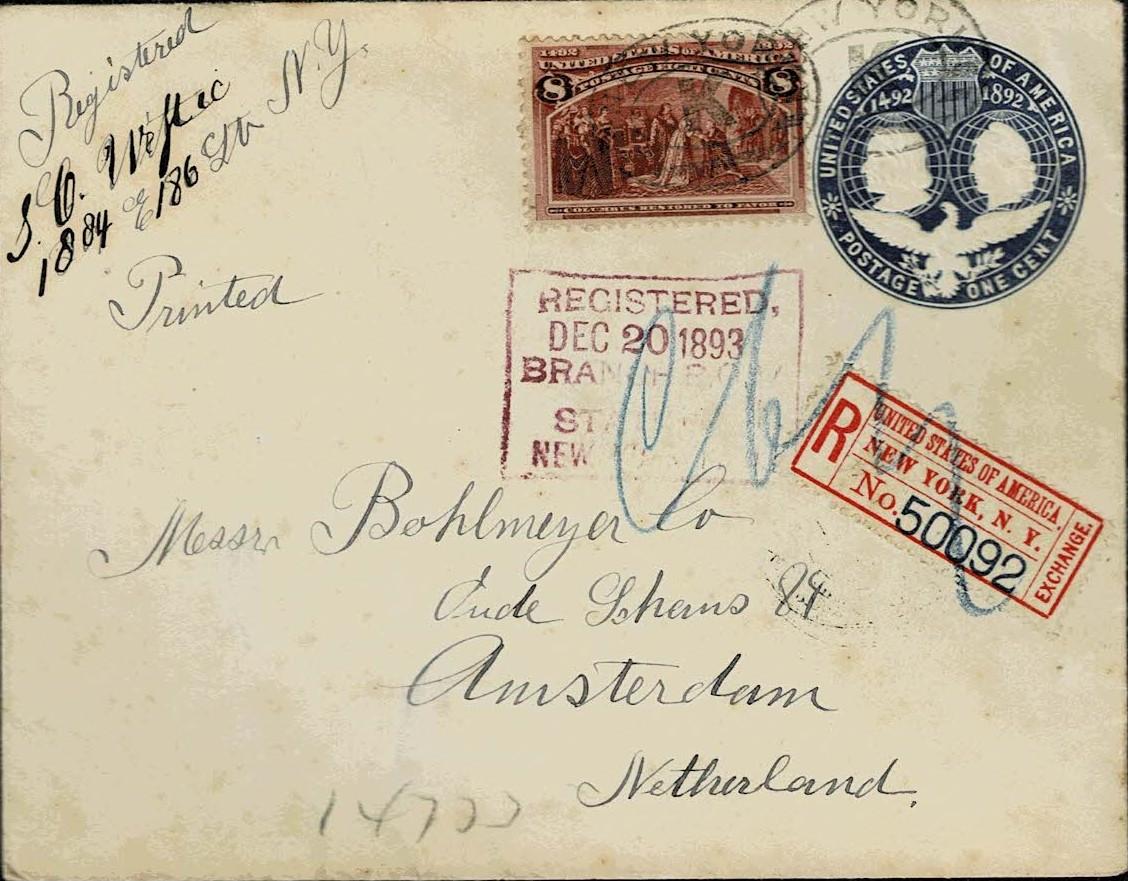 Registered
S. C.
1884 186 St. N.Y.
Printed
1492 1892
UNITED STATES OF AMERICA
POSTAGE EIGHT CENTS
8 8
COLUMBUS RESTORED TO FAVOR
NEW YORK
UNITED STATES OF AMERICA
1492 1892
POSTAGE ONE CENT
REGISTERED,
DEC 20 1893
BRANCH P.O.
NEW
R
UNITED STATES OF AMERICA
NEW YORK, N. Y.
No. 50092
EXCHANGE.
Messrs Bohlmeyer Co
Oude Schans 84
Amsterdam
Netherland.
14722